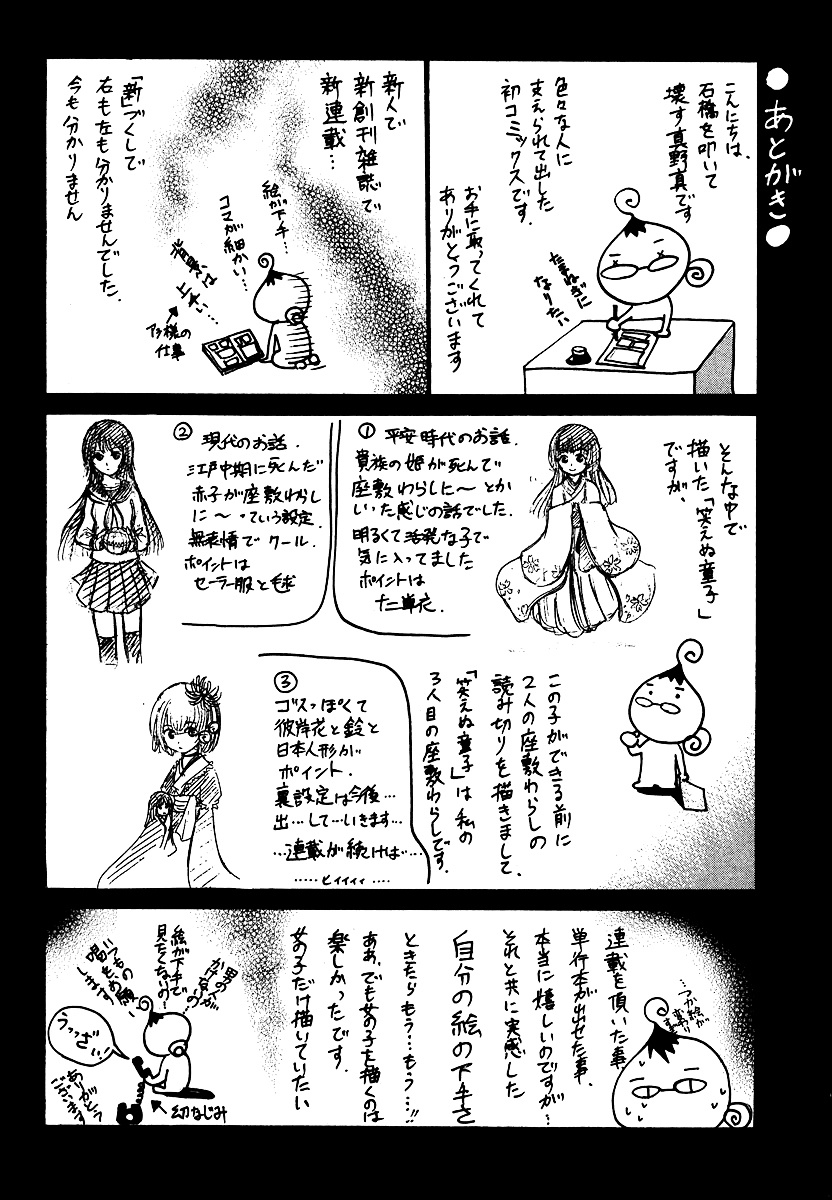 ●あとがき●
こんにちは、
石橋を叩いて
壊す真野真です
色々な人に
支えられて出した
初コミックスです。
お手に取ってくれて
ありがとうございます
たまねぎに
なりたい
新人で
新創刊雑誌で
新連載…
絵が下手…
コマが細かい…
背景は
上手い…
アシ様の
仕事
「新」づくしで
右も左も分かりませんでした。
今も分かりません
そんな中で
描いた「笑えぬ童子」
ですが、
① 平安時代のお話。
貴族の姫が死んで
座敷わらしに〜とか
いった感じの話でした
明るくて活発な子で
気に入ってました
ポイントは
十二単衣。
② 現代のお話。
江戸中期に死んだ
赤子が座敷わらし
に〜っていう設定
無表情でクール。
ポイントは
セーラー服と毬
この子ができる前に
2人の座敷わらしの
読み切りを描きまして、
「笑えぬ童子」は私の
3人目の座敷わらしです。
③
ゴスっぽくて
彼岸花と鈴と
日本人形が
ポイント。
裏設定は今後…
出…して…いきます…
…連載が続けば…
……ヒィィィィ……
連載を頂いた事、
単行本が出せた事、
本当に嬉しいのですが…
それと共に実感した
自分の絵の下手さ
ときたらもう…もう…!!
ああ、でも女の子を描くのは
楽しかったです。
女の子だけ描いていたい
男の人が
かけないの…
絵が下手で
見たくないの…
いつもの
うっざい…
幼なじみ
ありがとう
ございます